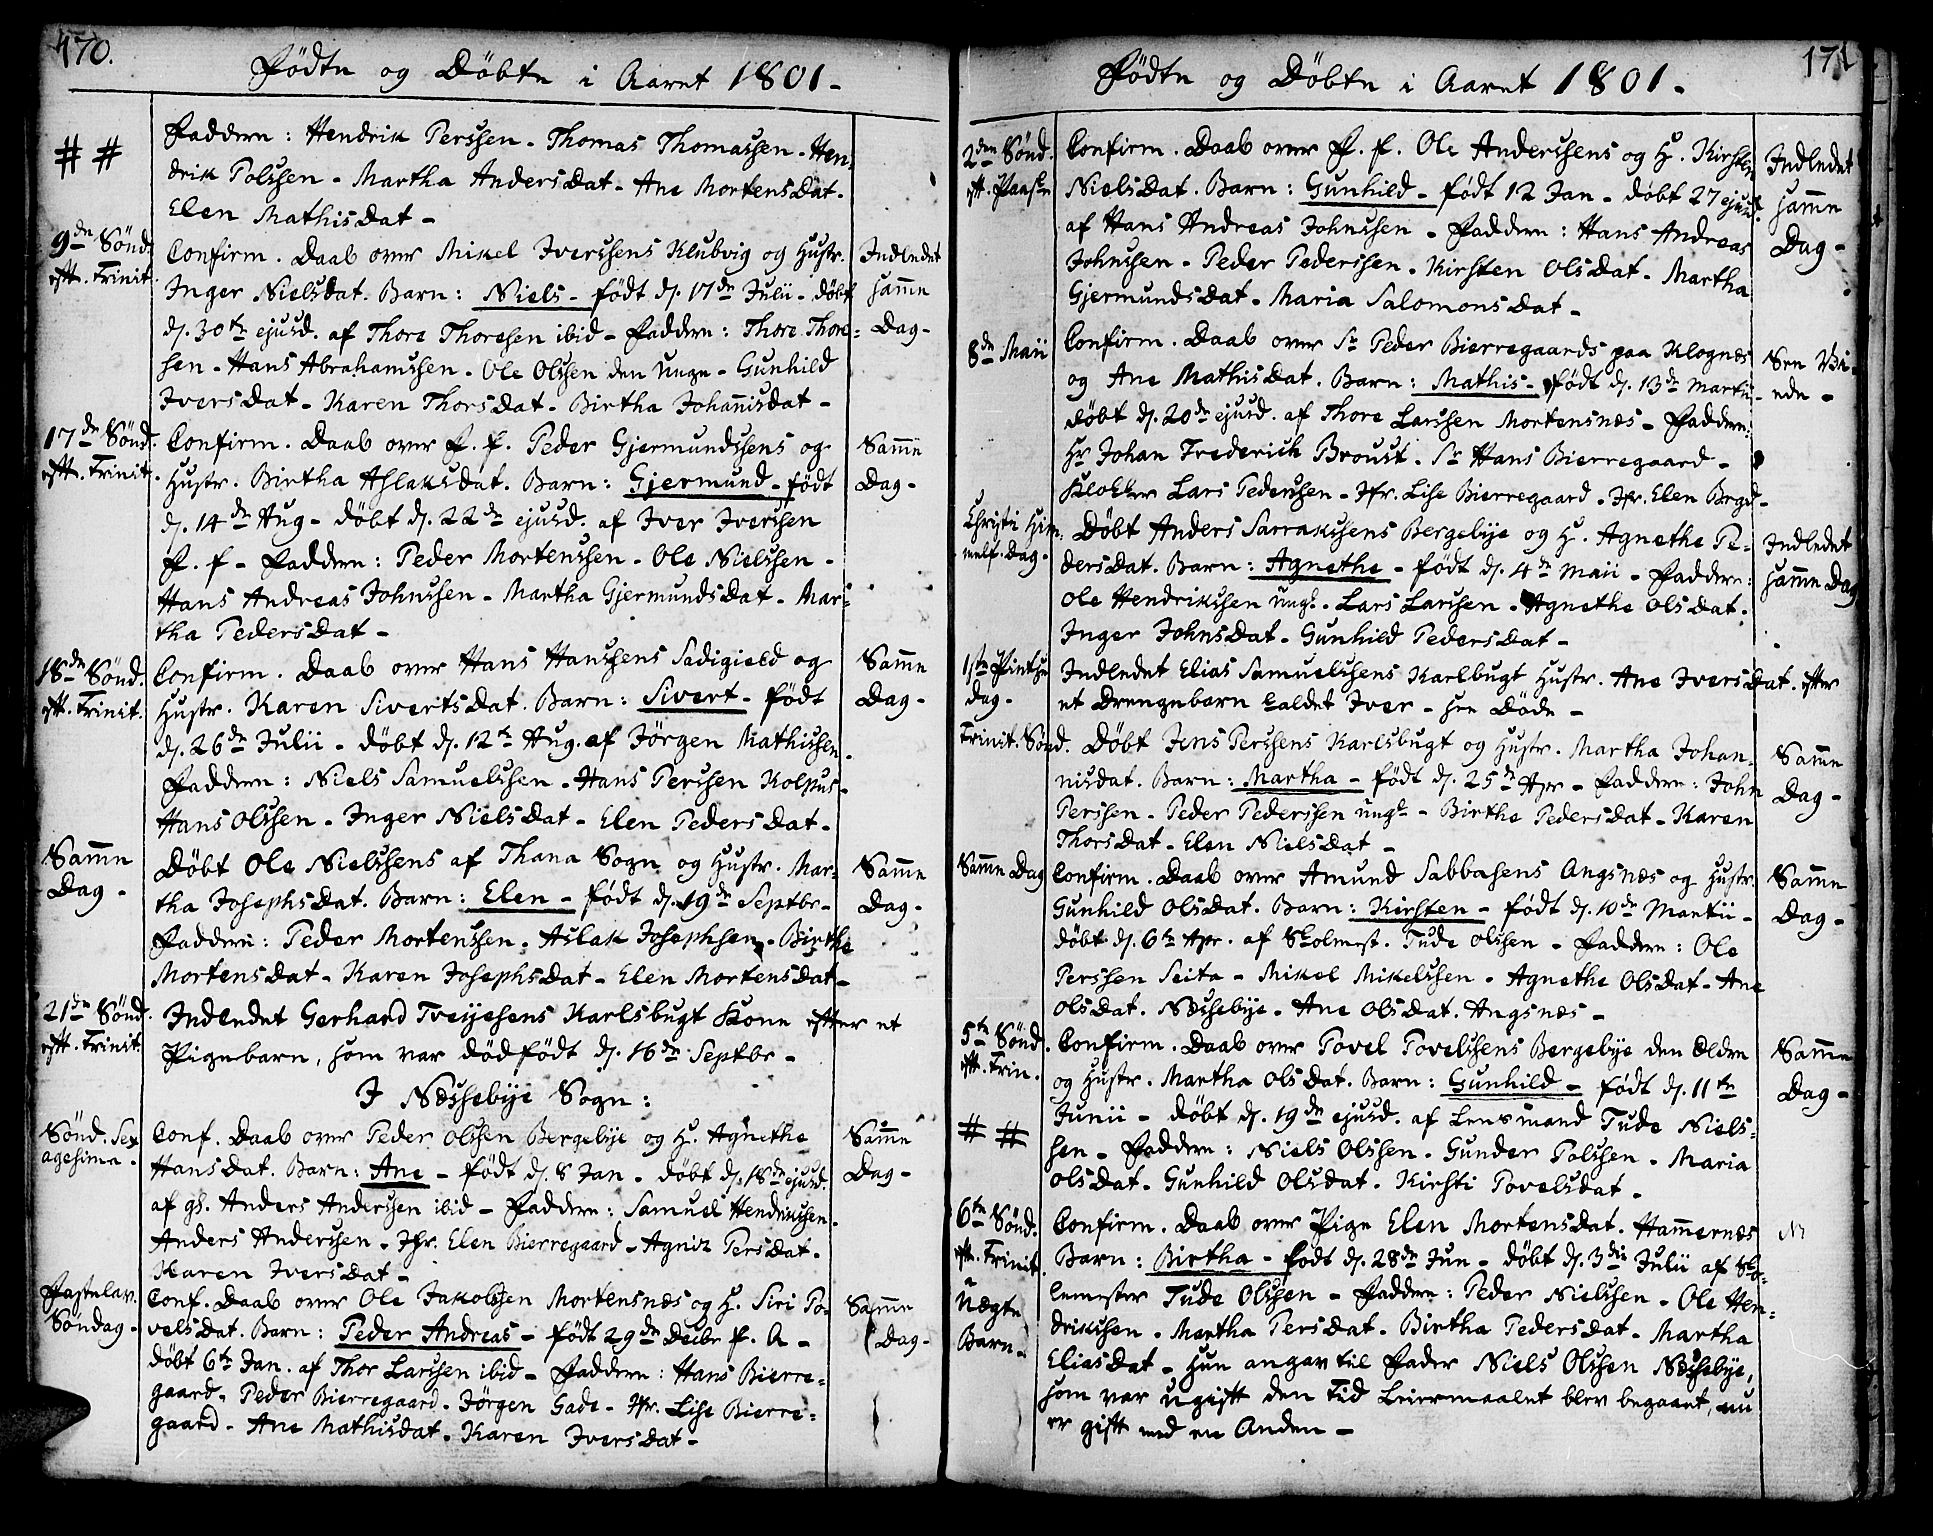 170.
Fødte og Døbte i Aaret 1801 -
# #
Faddere: Hendrik Perssen - Thomas Thomassen - Hen-
drik Polssen - Martha Andersdat - Ane Mortensdat -
Elen Mathisdat -
9de Sønd. eft. Trinit.
Confirm. Daab over Mikel Iverssens Klubvig og Hustr. Indledet
Inger Nielsdat. Barn: Niels - født d. 17de Julii - døbt samme
d. 30te ejusd. af Thore Thoresen ibid - Faddere: Thore Thore- Dag -
sen - Hans Abrahamssen - Ole Olssen den Unge - Gunhild
Iversdat - Karen Thorsdat - Birtha Johannisdat -
17de Sønd. eft. Trinit.
Confirm. Daab over P. f. Peder Gjermundssens og Samme
Hustr. Birtha Aslaksdat. Barn: Gjermund - født Dag -
d. 14de Aug - døbt d. 22de ejusd. af Iver Iverssen
P. f - Faddere: Peder Mortenssen - Ole Nielssen -
Hans Andreas Johnssen - Martha Gjermundsdat - Mar-
tha Pedersdat -
18de Sønd. eft. Trinit.
Confirm. Daab over Hans Hanssens Sadigield og Samme
Hustr. Karen Sivertsdat. Barn: Sivert - født Dag -
d. 26de Julii - døbt d. 12te Aug. af Jørgen Mathissen -
Faddere: Niels Samuelssen - Hans Perssen Kolpus -
Hans Olssen - Inger Nielsdat - Elen Pedersdat -
Samme Dag -
Døbt Ole Nielssens af Thana Sogn og Hustr. Mar- Samme
tha Josephsdat. Barn: Elen - født d. 19de Septbr - Dag -
Faddere: Peder Mortenssen - Aslak Josephsen - Birthe
Mortensdat - Karen Josephsdat - Elen Mortensdat -
21de Sønd. eft. Trinit.
Indledet Gerhard Treyesens Karlsbugt Kone efter et
Pigebarn, som var dødfødt d. 16de Septbr -
I Næssebye Sogn:
Sønd. Sexagesima.
Conf. Daab over Peder Olssen Bergebye og H. Agnethe Samme
Hansdat. Barn: Ane - født d. 8 Jan - døbt d. 18de ejusd. Dag -
af gl. Anders Anderssen ibid - Faddere: Samuel Hendrikssen -
Anders Anderssen - Jfr. Elen Bierregaard - Agnis Persdat -
Karen Iversdat -
Fastelav. Søndag -
Conf. Daab over Ole Jakobssen Mortensnæs og H. Siri Po- Samme
velsdat. Barn: Peder Andreas - født 29de Decbr f. A - Dag -
døbt 6te Jan. af Thor Larssen ibid - Faddere: Hans Bierre-
gaard - Peder Bierregaard - Jørgen Gade - Jfr. Lise Bierre-
gaard - Ane Mathisdat - Karen Iversdat -
171
Fødte og Døbte i Aaret 1801 -
2den Sønd. eft. Paaske
Confirm. Daab over P. f. Ole Anderssens og H. Kirsten Indledet
Nielsdat. Barn: Gunhild - født 12 Jan - døbt 27 ejusd. samme
af Hans Andreas Johnssen - Faddere: Hans Andreas Dag -
Johnssen - Peder Pederssen - Kirsten Olsdat - Martha
Gjermundsdat - Maria Salomonsdat -
8de Maii
Confirm. Daab over Sr Peder Bierregaards paa Klognæs
og Ane Mathisdat. Barn: Mathis - født d. 13de Martii -
døbt d. 20de ejusd. af Thore Larssen Mortensnæs - Faddere:
Hr Johan Frederich Broust - Sr Hans Bierregaard -
Klokker Lars Pederssen - Jfr. Lise Bierregaard - Jfr. Elen Brgd -
Christi Himmelf. Dag -
Døbt Anders Sarrakssens Bergebye og H. Agnethe Pe- Indledet
dersdat. Barn: Agnethe - født d. 4de Maii - Faddere: samme Dag
Ole Hendrikssen ungr. - Lars Larssen - Agnethe Olsdat -
Inger Johnsdat - Gunhild Pedersdat -
1ste Pintse dag -
Indledet Elias Samuelssens Karlbugt Hustr. Ane Iversdat. efter
et Drengebarn kaldet Iver - see Døde -
Trinit. Sønd.
Døbt Jens Perssens Karlsbugt og Hustr. Martha Johan- Samme
nisdat. Barn: Martha - født d. 25de Apr - Faddere: John Dag -
Perssen - Peder Pederssen ungr - Birthe Pedersdat - Karen
Thorsdat - Elen Nielsdat -
Samme Dag
Confirm. Daab over Amund Sabbasens Angsnæs og Hustr. Samme
Gunhild Olsdat. Barn: Kirsten - født d. 10de Martii - Dag -
døbt d. 6te Apr. af Skolmest. Tude Olssen - Faddere: Ole
Perssen Seita - Mikel Mikelssen - Agnethe Olsdat - Ane
Olsdat. Næssebye - Ane Olsdat. Angsnæs -
5te Sønd. eft. Trin.
Confirm. Daab over Povel Povelssens Bergebye den Eldre Samme
og Hustr. Martha Olsdat. Barn: Gunhild - født d. 11te Dag -
Junii - døbt d. 19de ejusd. af Lensmand Tude Niels-
# #
sen - Faddere: Niels Olssen - Gunder Polssen - Maria
Olsdat - Gunhild Olsdat - Kirsti Povelsdat -
6te Sønd. eft. Trinit. Uægte Barn -
Confirm. Daab over Pige Elen Mortensdat. Hammernæs
Barn: Birtha - født d. 28de Jun - døbt d. 3die Julii af Sko-
lemester Tude Olssen - Faddere: Peder Nielssen - Ole Hen-
drikssen - Martha Persdat - Birtha Pedersdat - Martha
Eliasdat - Hun angav til Fader Niels Olssen Næssebye,
som var ugift den Tid Leiermaalet blev begaaet, nu
er gift med en Anden -